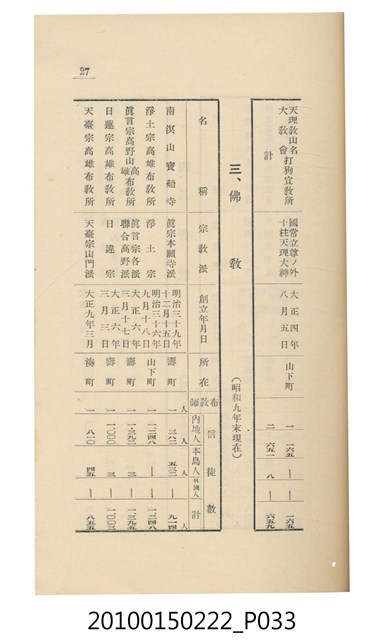 27
天理敎山名大敎會打狗宣敎所 國常立尊ノ外十柱天理大神 大正四年八月五日 山下町 一 一六五 — — 一六五
計 二 六五一 八 — 六五九
三、佛敎 (昭和九年末現在)
名稱 宗敎派 創立年月日 所在 布敎師 信徒數 內地人 本島人 外國人 計
南溟山寶船寺 眞宗本願寺派 明治三十九年十二月十五日 壽町 一人 三八二人 五三二 — 九一四人
淨土宗高雄布敎所 淨土宗 明治三十六年九月十八日 山下町 一 一、二四八 — — 一、二四八
眞言宗高野山高雄布敎所 眞言宗各派聯合高野派 大正六年三月十七日 壽町 一 一、三九二 三 — 一、三九五
日蓮宗高雄布敎所 日蓮宗 大正六年三月三日 壽町 一 一、〇〇〇 三 — 一、〇〇三
天臺宗高雄布敎所 天臺宗山門派 大正九年三月 湊町 一 八一〇 四五 — 八五五
20100150222_P033